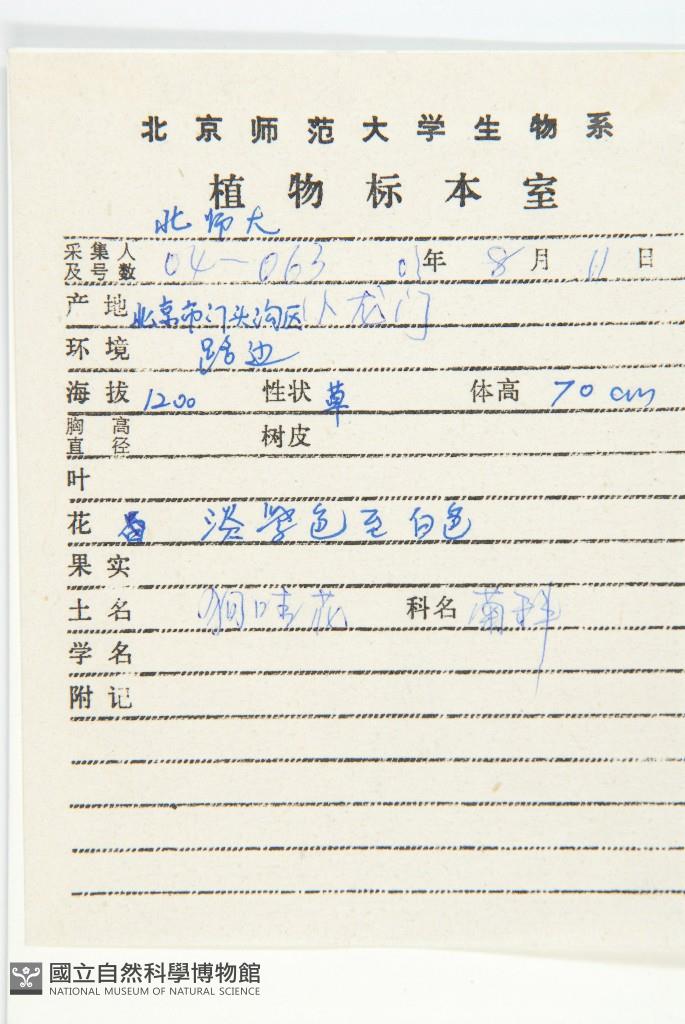 北京师范大学生物系
植物标本室
北师大
采集人及号数 04-063 年 8月 11日
产地 北京市门头沟区小龙门
环境 路边
海拔 1200 性状 草 体高 70cm
胸高直径 树皮
叶
花 淡紫色至白色
果实
土名 狗哇花 科名 菊科
学名
附记
國立自然科學博物館
NATIONAL MUSEUM OF NATURAL SCIENCE